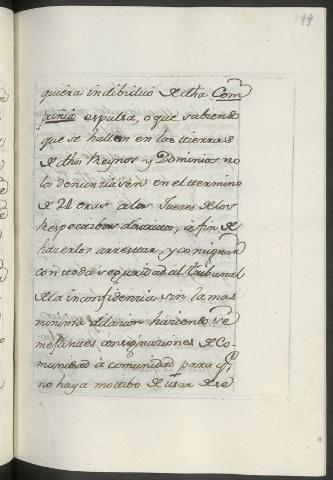 199
quiera indibiduo de dha Com
pañia expulsa, o que sabiendo
que se hallen en las tierras
de dhos Reynos y Dominios no
los denunziasen en el termino
de 24 oras a los Juezes de los
Respectibos distritos, a fin de
hazerlos arrestar, y consignar
con toda seguridad al Tribunal
de la inconfidenzia sin la mas
minima dilazion haziendo se
mejantes consignaziones de Co-
munidad à comunidad para qe
no haya motibo de usar de